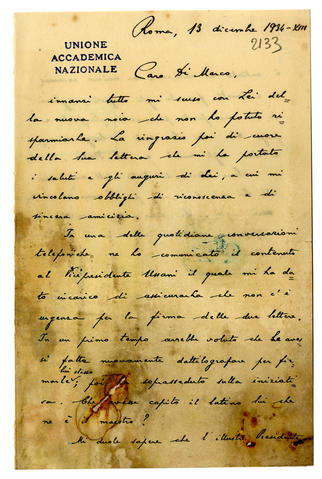 Roma, 13 dicembre 1934-XIII
2133
UNIONE
ACCADEMICA
NAZIONALE
Caro Di Marco,
innanzi tutto mi scuso con Lei del-
la nuova noia che non ho potuto ri-
sparmiarLe. La ringrazio poi di cuore
della Sua lettera che mi ha portato
i saluti e gli auguri di Lei, a cui mi
vincolano obblighi di riconoscenza e di
sincera amicizia.
In una delle quotidiane conversazioni
telefoniche ne ho comunicato il contenuto
al Vicepresidente Ussani il quale mi ha da-
to incarico di assicurarLa che non c'è
urgenza per la firma delle due lettere.
In un primo tempo avrebbe voluto che le aves-
si fatte nuovamente dattilografare per fir-
lui stesso
marle; poi soprasseduto sulla iniziati-
va. Che avesse capito il latino lui che
ne è il maestro?
Mi duole sapere che l'illustre Presidente